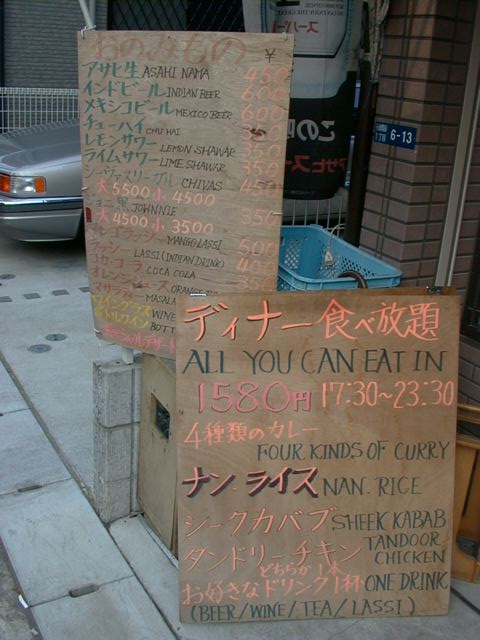 おのみもの ¥
アサヒ生 ASAHI NAMA 450
インドビール INDIAN BEER 600
メキシコビール MEXICO BEER 600
チューハイ CHU HAI
レモンサワー LEMON SHAWAR 350
ライムサワー LIME SHAWAR 350
シーバスリーガル CHIVAS 450
大 5500 小 4500
ジョニ黒 JOHNNIE 350
大 4500 小 3500
マンゴラッシー MANGO LASSI 500
ラッシー LASSI (INDIAN DRINK) 400
コカ・コーラ COCA COLA
オレンジジュース
WINE
ボトルワイン
6-13
ディナー食べ放題
ALL YOU CAN EAT IN
1580円 17:30~23:30
4種類のカレー
FOUR KINDS OF CURRY
ナン.ライス NAN. RICE
シークカバブ SHEEK KABAB
タンドリーチキン TANDOOR CHICKEN
どちらか1本
お好きなドリンク1杯 ONE DRINK
(BEER/WINE/TEA/LASSI)